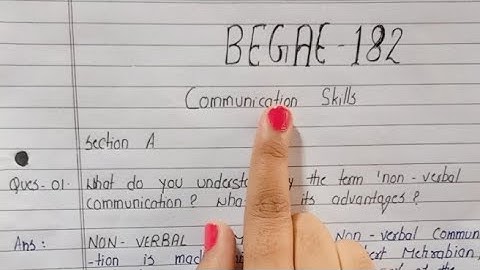 BEGAE-182
Communication Skills
Section A
Ques-01. What do you understa y the term 'non-verbal
communication? wha its advantages?
Ans: NON-VERBAL Non-verbal Commun
-tion is mad ert Mehrabian,